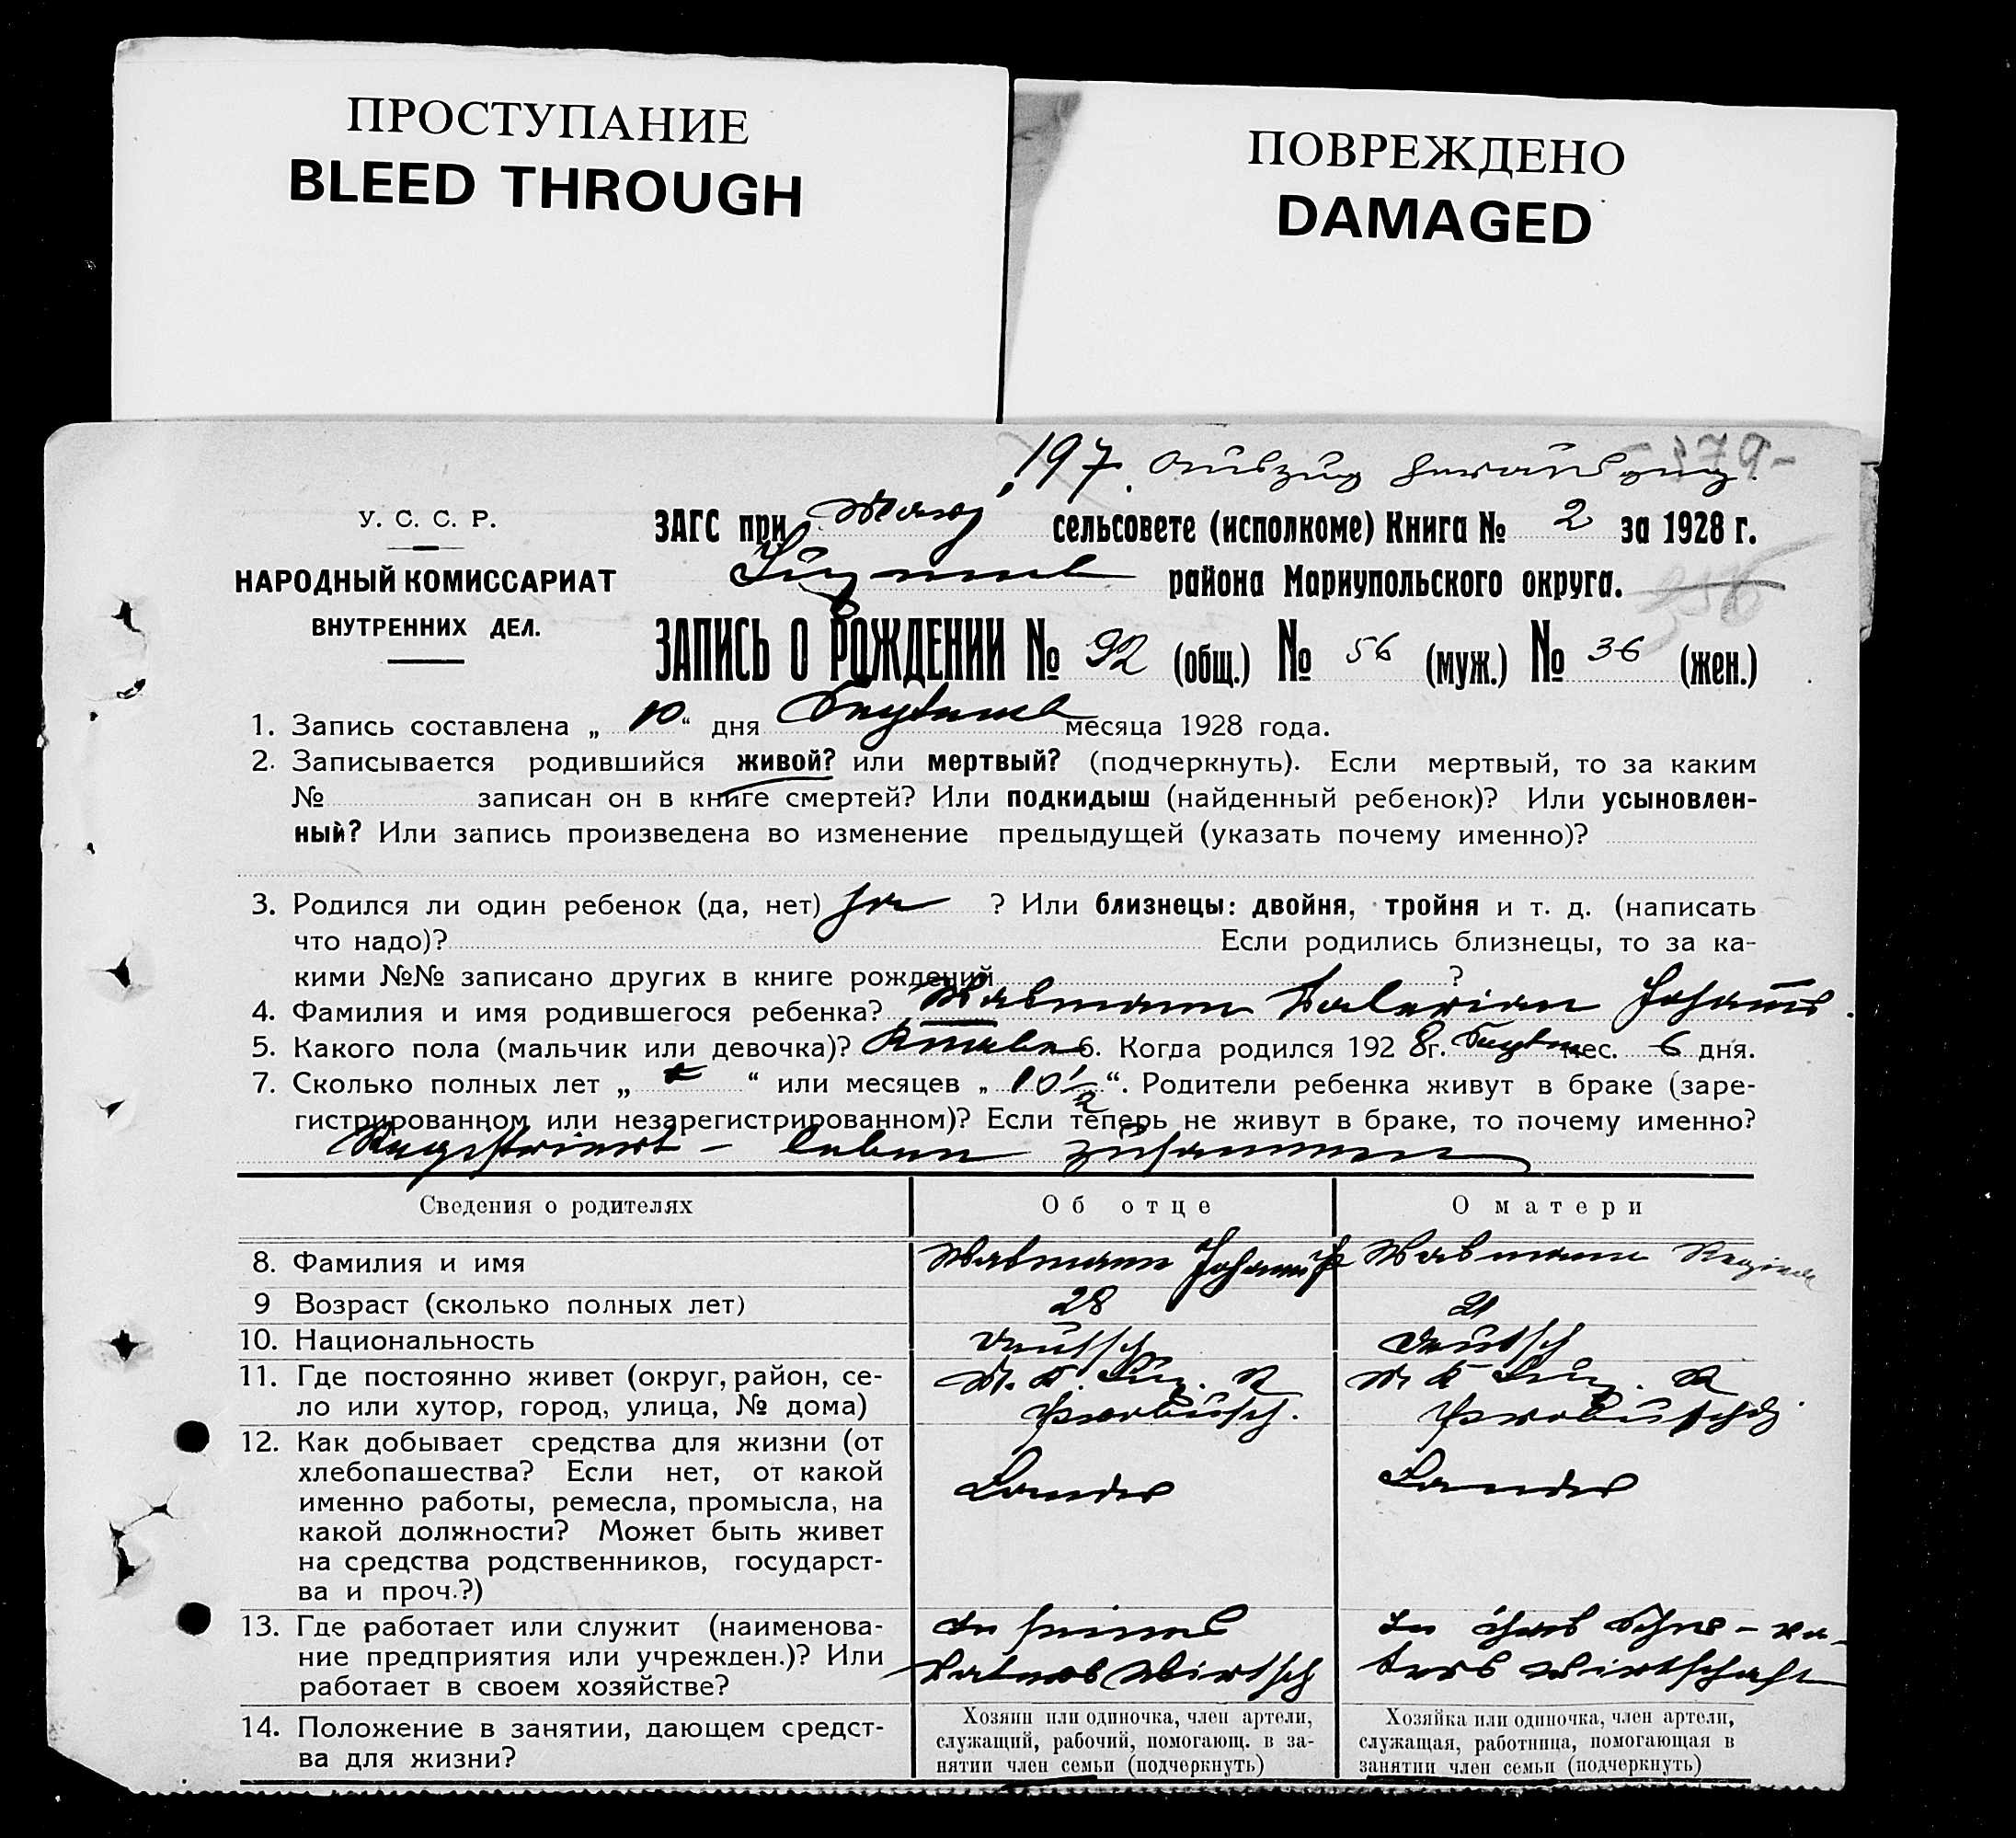 ПРОСТУПАНИЕ
BLEED THROUGH
ПОВРЕЖДЕНО
DAMAGED
197. Auszug
- 379 -
У. С. С. Р.
НАРОДНЫЙ КОМИССАРИАТ
ВНУТРЕННИХ ДЕЛ.
ЗАГС при сельсовете (исполкоме) Книга № 2 за 1928 г.
района Мариупольского округа.
ЗАПИСЬ О РОЖДЕНИИ № 92 (общ.) № 56 (муж.) № 36 (жен.)
1. Запись составлена „ 10 “ дня September месяца 1928 года.
2. Записывается родившийся живой? или мертвый? (подчеркнуть). Если мертвый, то за каким
№ записан он в книге смертей? Или подкидыш (найденный ребенок)? Или усыновлен-
ный? Или запись произведена во изменение предыдущей (указать почему именно)?
3. Родился ли один ребенок (да, нет) Ja ? Или близнецы: двойня, тройня и т. д. (написать
что надо)? Если родились близнецы, то за ка-
кими №№ записано других в книге рождений ?
4. Фамилия и имя родившегося ребенка? Wasmann Valerian Johannes.
5. Какого пола (мальчик или девочка)? Knabe 6. Когда родился 192 8 г. мес. 6 дня.
7. Сколько полных лет „ “ или месяцев „ 10 1/2 “. Родители ребенка живут в браке (заре-
гистрированном или незарегистрированном)? Если теперь не живут в браке, то почему именно?
Registriert - leben zusammen
Сведения о родителях Об отце О матери
8. Фамилия и имя Wasmann Johann Wasmann Regina
9 Возраст (сколько полных лет) 28 21
10. Национальность Deutsch Deutsch
11. Где постоянно живет (округ, район, се- M. K. R M K R
ло или хутор, город, улица, № дома)
12. Как добывает средства для жизни (от
хлебопашества? Если нет, от какой
именно работы, ремесла, промысла, на
какой должности? Может быть живет
на средства родственников, государст-
ва и проч.?)
13. Где работает или служит (наименова- In seines In ihres Schw-va-
ние предприятия или учрежден.)? Или Vaters Wirtsch ters Wirtschaft
работает в своем хозяйстве?
14. Положение в занятии, дающем средст-
ва для жизни?
Хозяин или одиночка, член артели,
служащий, рабочий, помогающ. в за-
нятии член семьи (подчеркнуть)
Хозяйка или одиночка, член артели,
служащая, работница, помогающая в
занятии член семьи (подчеркнуть)